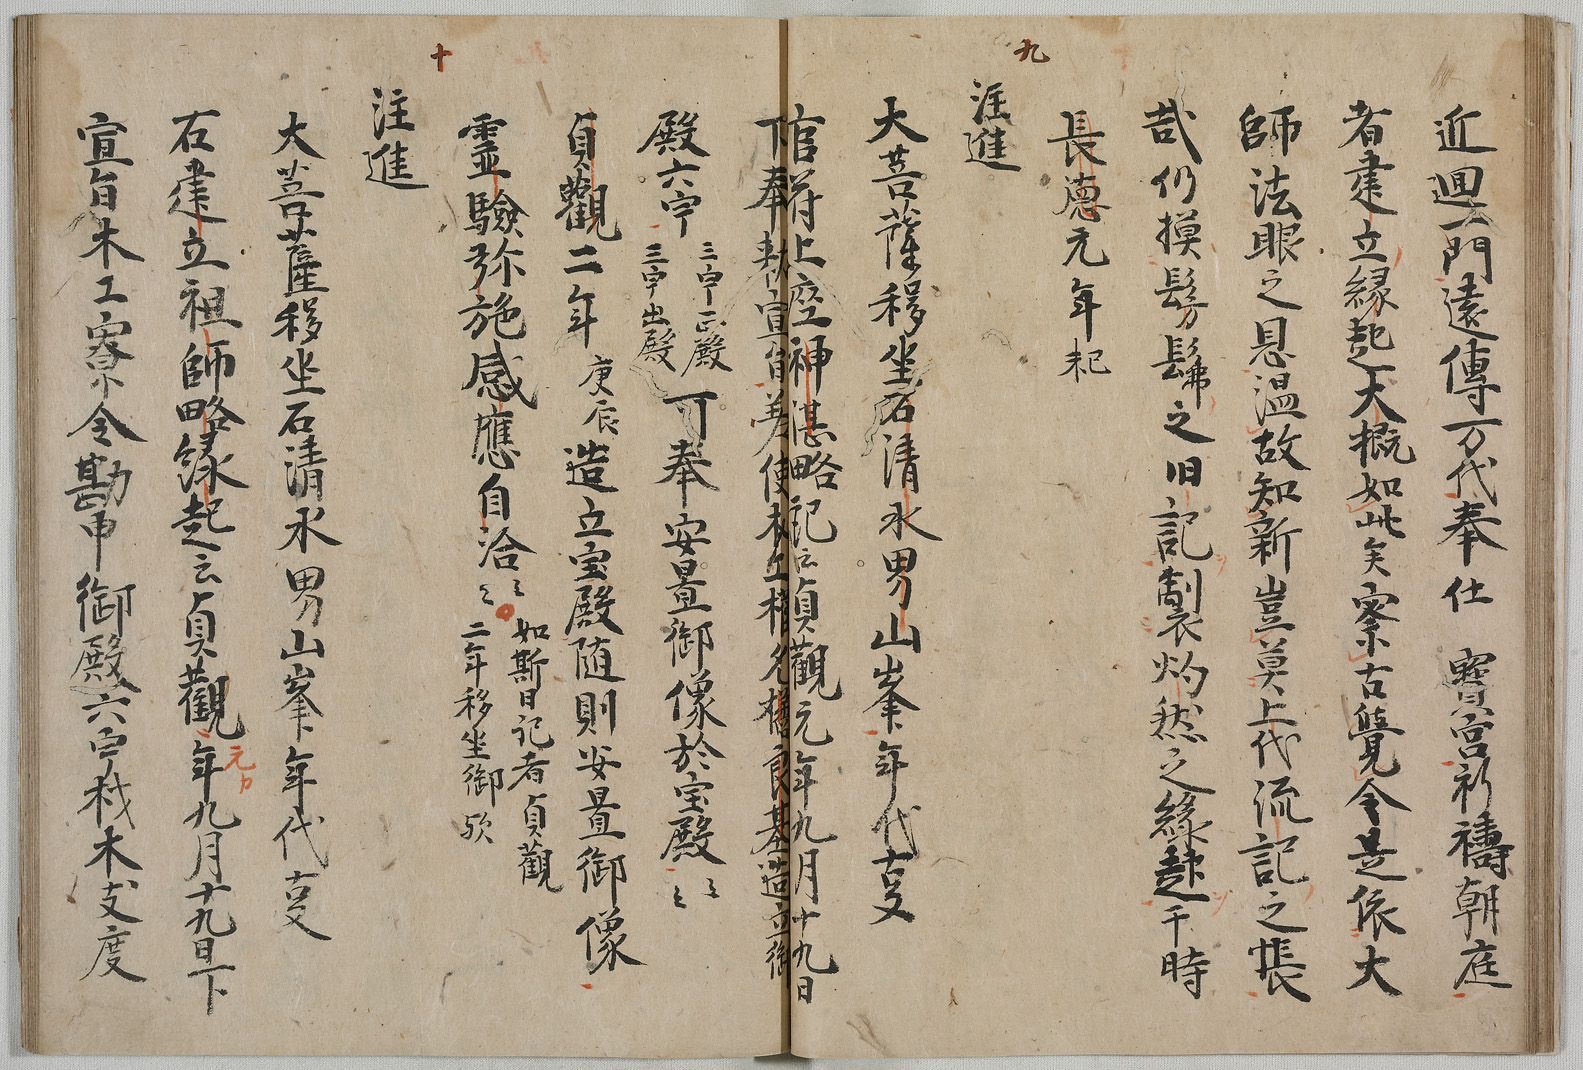 九
近廻一門遠傳万代奉仕寶宮祈禱朝庭
者建立縁起大概如此矣寮古覺今是依大
師法眼之恩温故知新豈莫上代流記之帳
哉仍摸髣髴之旧記製灼然之縁起于時
長德元年
注進
大菩薩移坐石清水男山峯年代夏
官符上座神湛略記云貞觀元年九月十九日
十
下奉勅宣旨差使木工權允橘良基造立御
殿六宇三宇正殿三宇出殿可奉安置御像於宝殿云々
貞觀二年庚辰造立宝殿随則安置御像
靈驗弥施感應自洽云々如斯日記者貞觀二年移坐御歟
注進
大菩薩移坐石清水男山峯年代夏
右建立祖師略縁起云貞觀年九月十九日下
元カ
宣旨木工寮令勘申御殿六宇材木支度